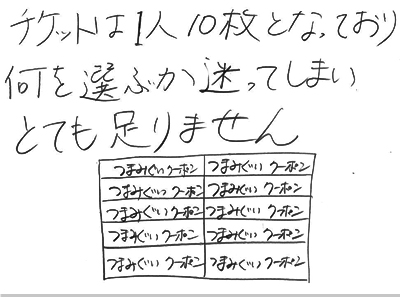 チケットは1人10枚となっており
何を選ぶか迷ってしまい
とても足りません
つまみぐいクーポン つまみぐい クーポン
つまみぐい クーポン つまみぐい クーポン
つまみぐい クーポン つまみぐい クーポン
つまみぐい クーポン つまみぐい クーポン
つまみぐい クーポン つまみぐい クーポン